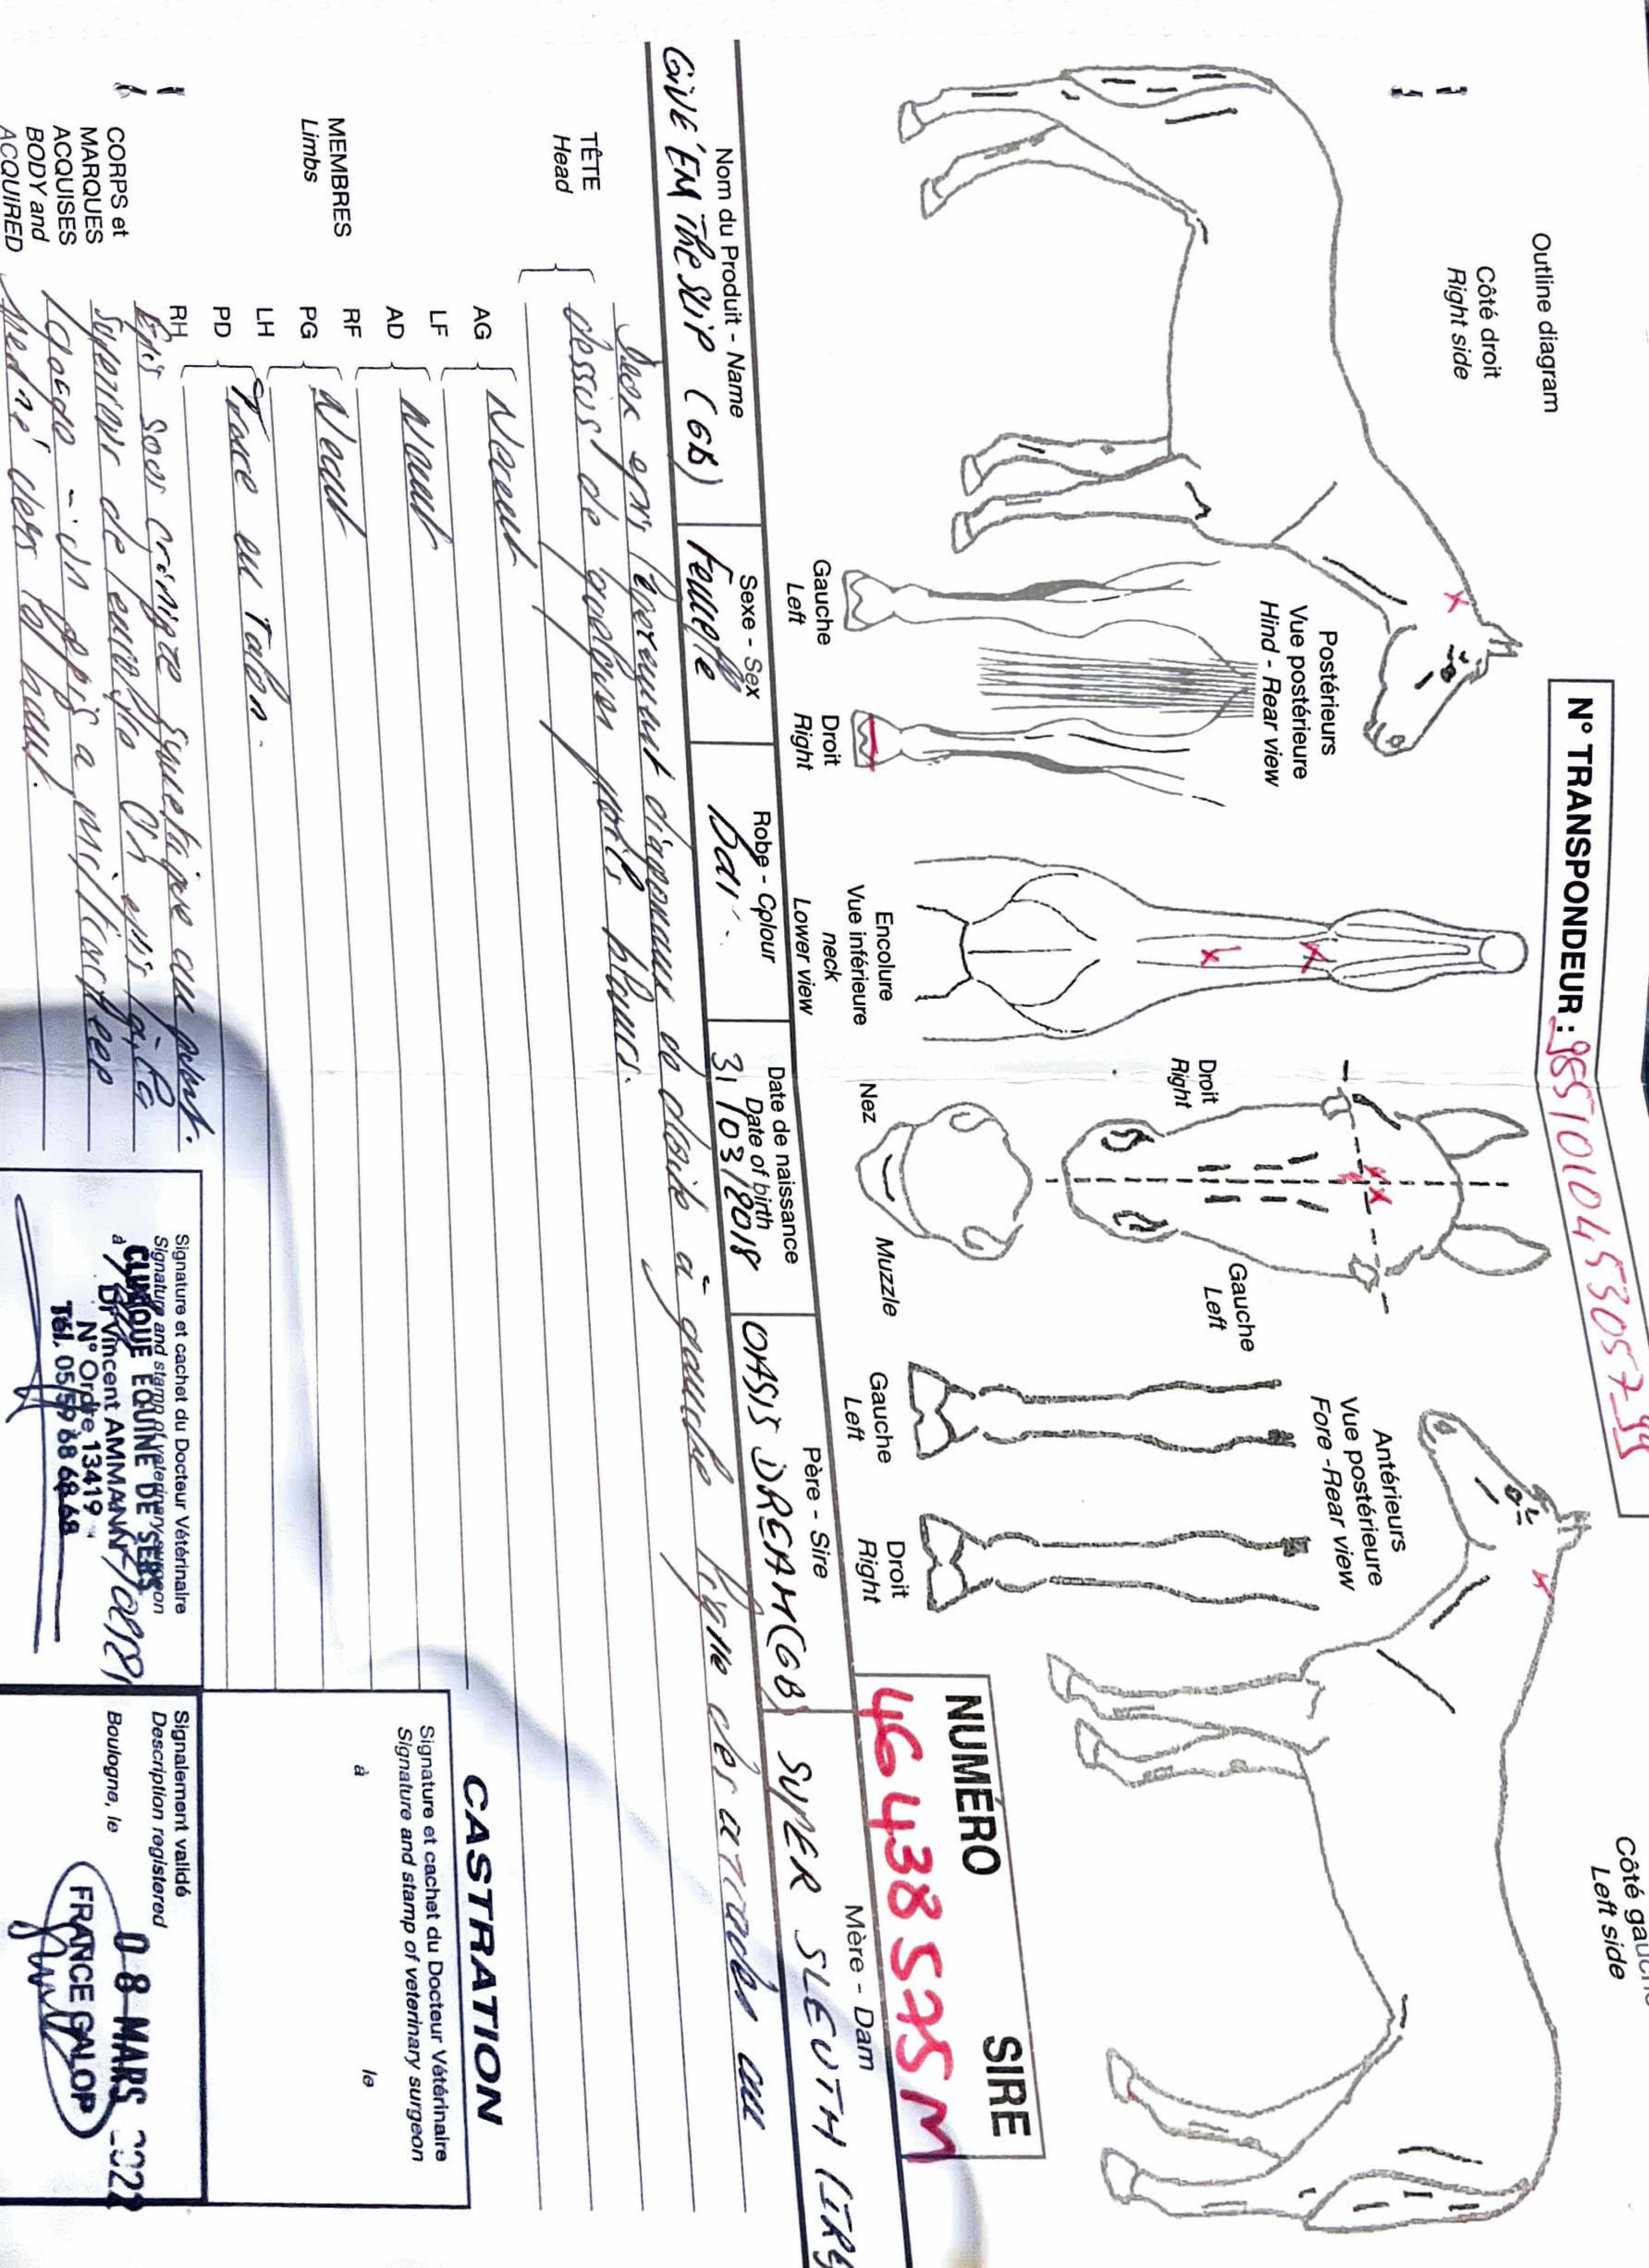 Outline diagram
Côté droit
Right side
N° TRANSPONDEUR : 985101045305799
Côté gauche
Left side
Postérieurs
Vue postérieure
Hind - Rear view
Gauche
Left
Droit
Right
Encolure
Vue inférieure
neck
Lower view
Droit
Right
Gauche
Left
Nez
Muzzle
Antérieurs
Vue postérieure
Fore - Rear view
Gauche
Left
Droit
Right
NUMÉRO SIRE
46438575M
Nom du Produit - Name
GIVE'EM The SLIP (GB)
Sexe - Sex
Femelle
Robe - Colour
Bai
Date de naissance
Date of birth
31/03/2018
Père - Sire
OASIS DREAM (GB)
Mère - Dam
SUPER SLEUTH (IRE
TÊTE
Head
Deux épis légèrement diagonaux de droite à gauche ligne des arcades au
dessus de quelques poils blancs.
MEMBRES
Limbs
AG
LF
Néant
AD
RF
Néant
PG
LH
Néant
PD
RH
Trace au Talon.
CORPS et
MARQUES
ACQUISES
BODY and
ACQUIRED
Epis sous crinière symétrique au quart
supérieur de l'encolure. Un épis à la
gorge - un épis à mi trachée
plus haut.
Signature et cachet du Docteur Vétérinaire
Signature and stamp of veterinary surgeon
CLINIQUE EQUINE DE SERS
à
Dr Vincent AMMANN
N° Ordre 13419
Tél. 05 59 68 68 68
CASTRATION
Signature et cachet du Docteur Vétérinaire
Signature and stamp of veterinary surgeon
à le
Signalement validé
Description registered
Boulogne, le
08 MARS 2022
FRANCE GALOP